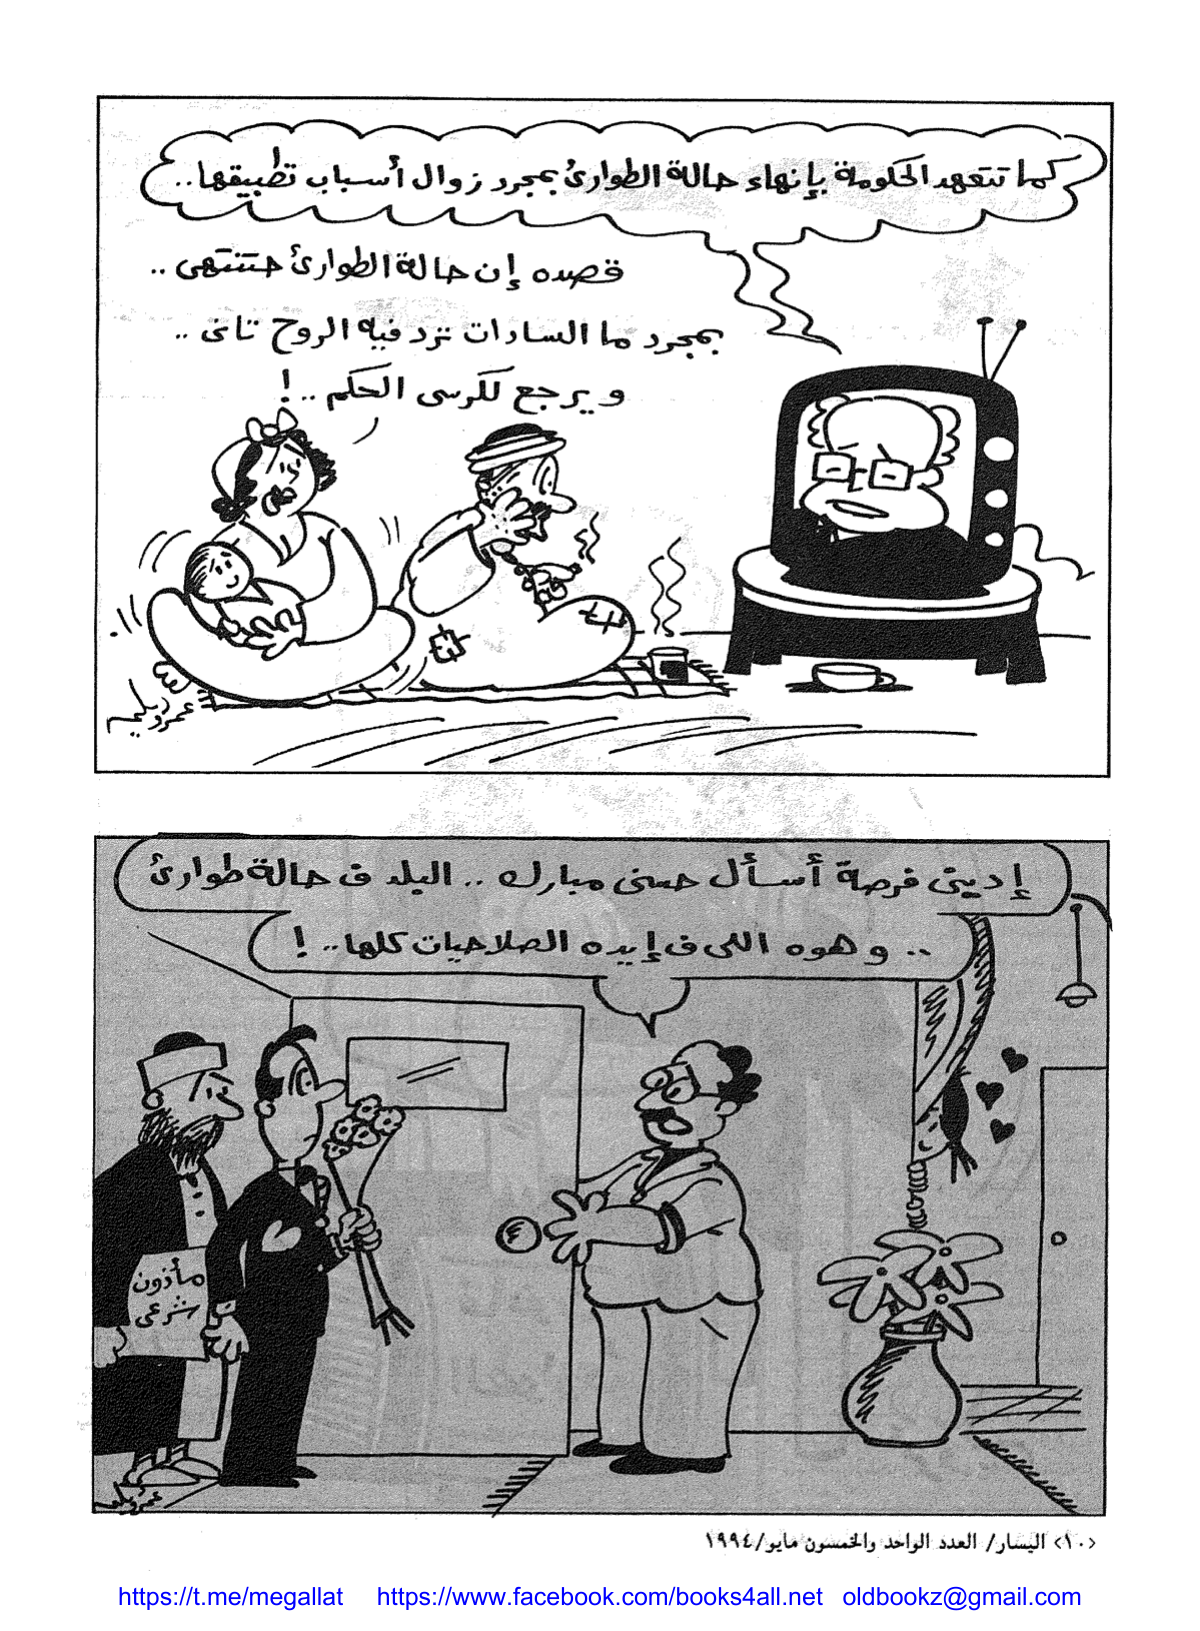 كما تتعهد الحكومة بإنهاء حالة الطوارئ بمجرد زوال أسباب تطبيقها..
قصده إن حالة الطوارئ حتنتهى ..
بمجرد ما السادات ترد فيه الروح تانى ..
ويرجع لكرسى الحكم ..!
عمرو سليم
إدينى فرصة أسأل حسنى مبارك .. البلد ف حالة طوارئ
.. وهوه اللى ف إيده الصلاحيات كلها..!
مأذون
شرعى
عمرو سليم
<١٠> اليسار/ العدد الواحد والخمسون مايو/١٩٩٤
https://t.me/megallat https://www.facebook.com/books4all.net oldbookz@gmail.com